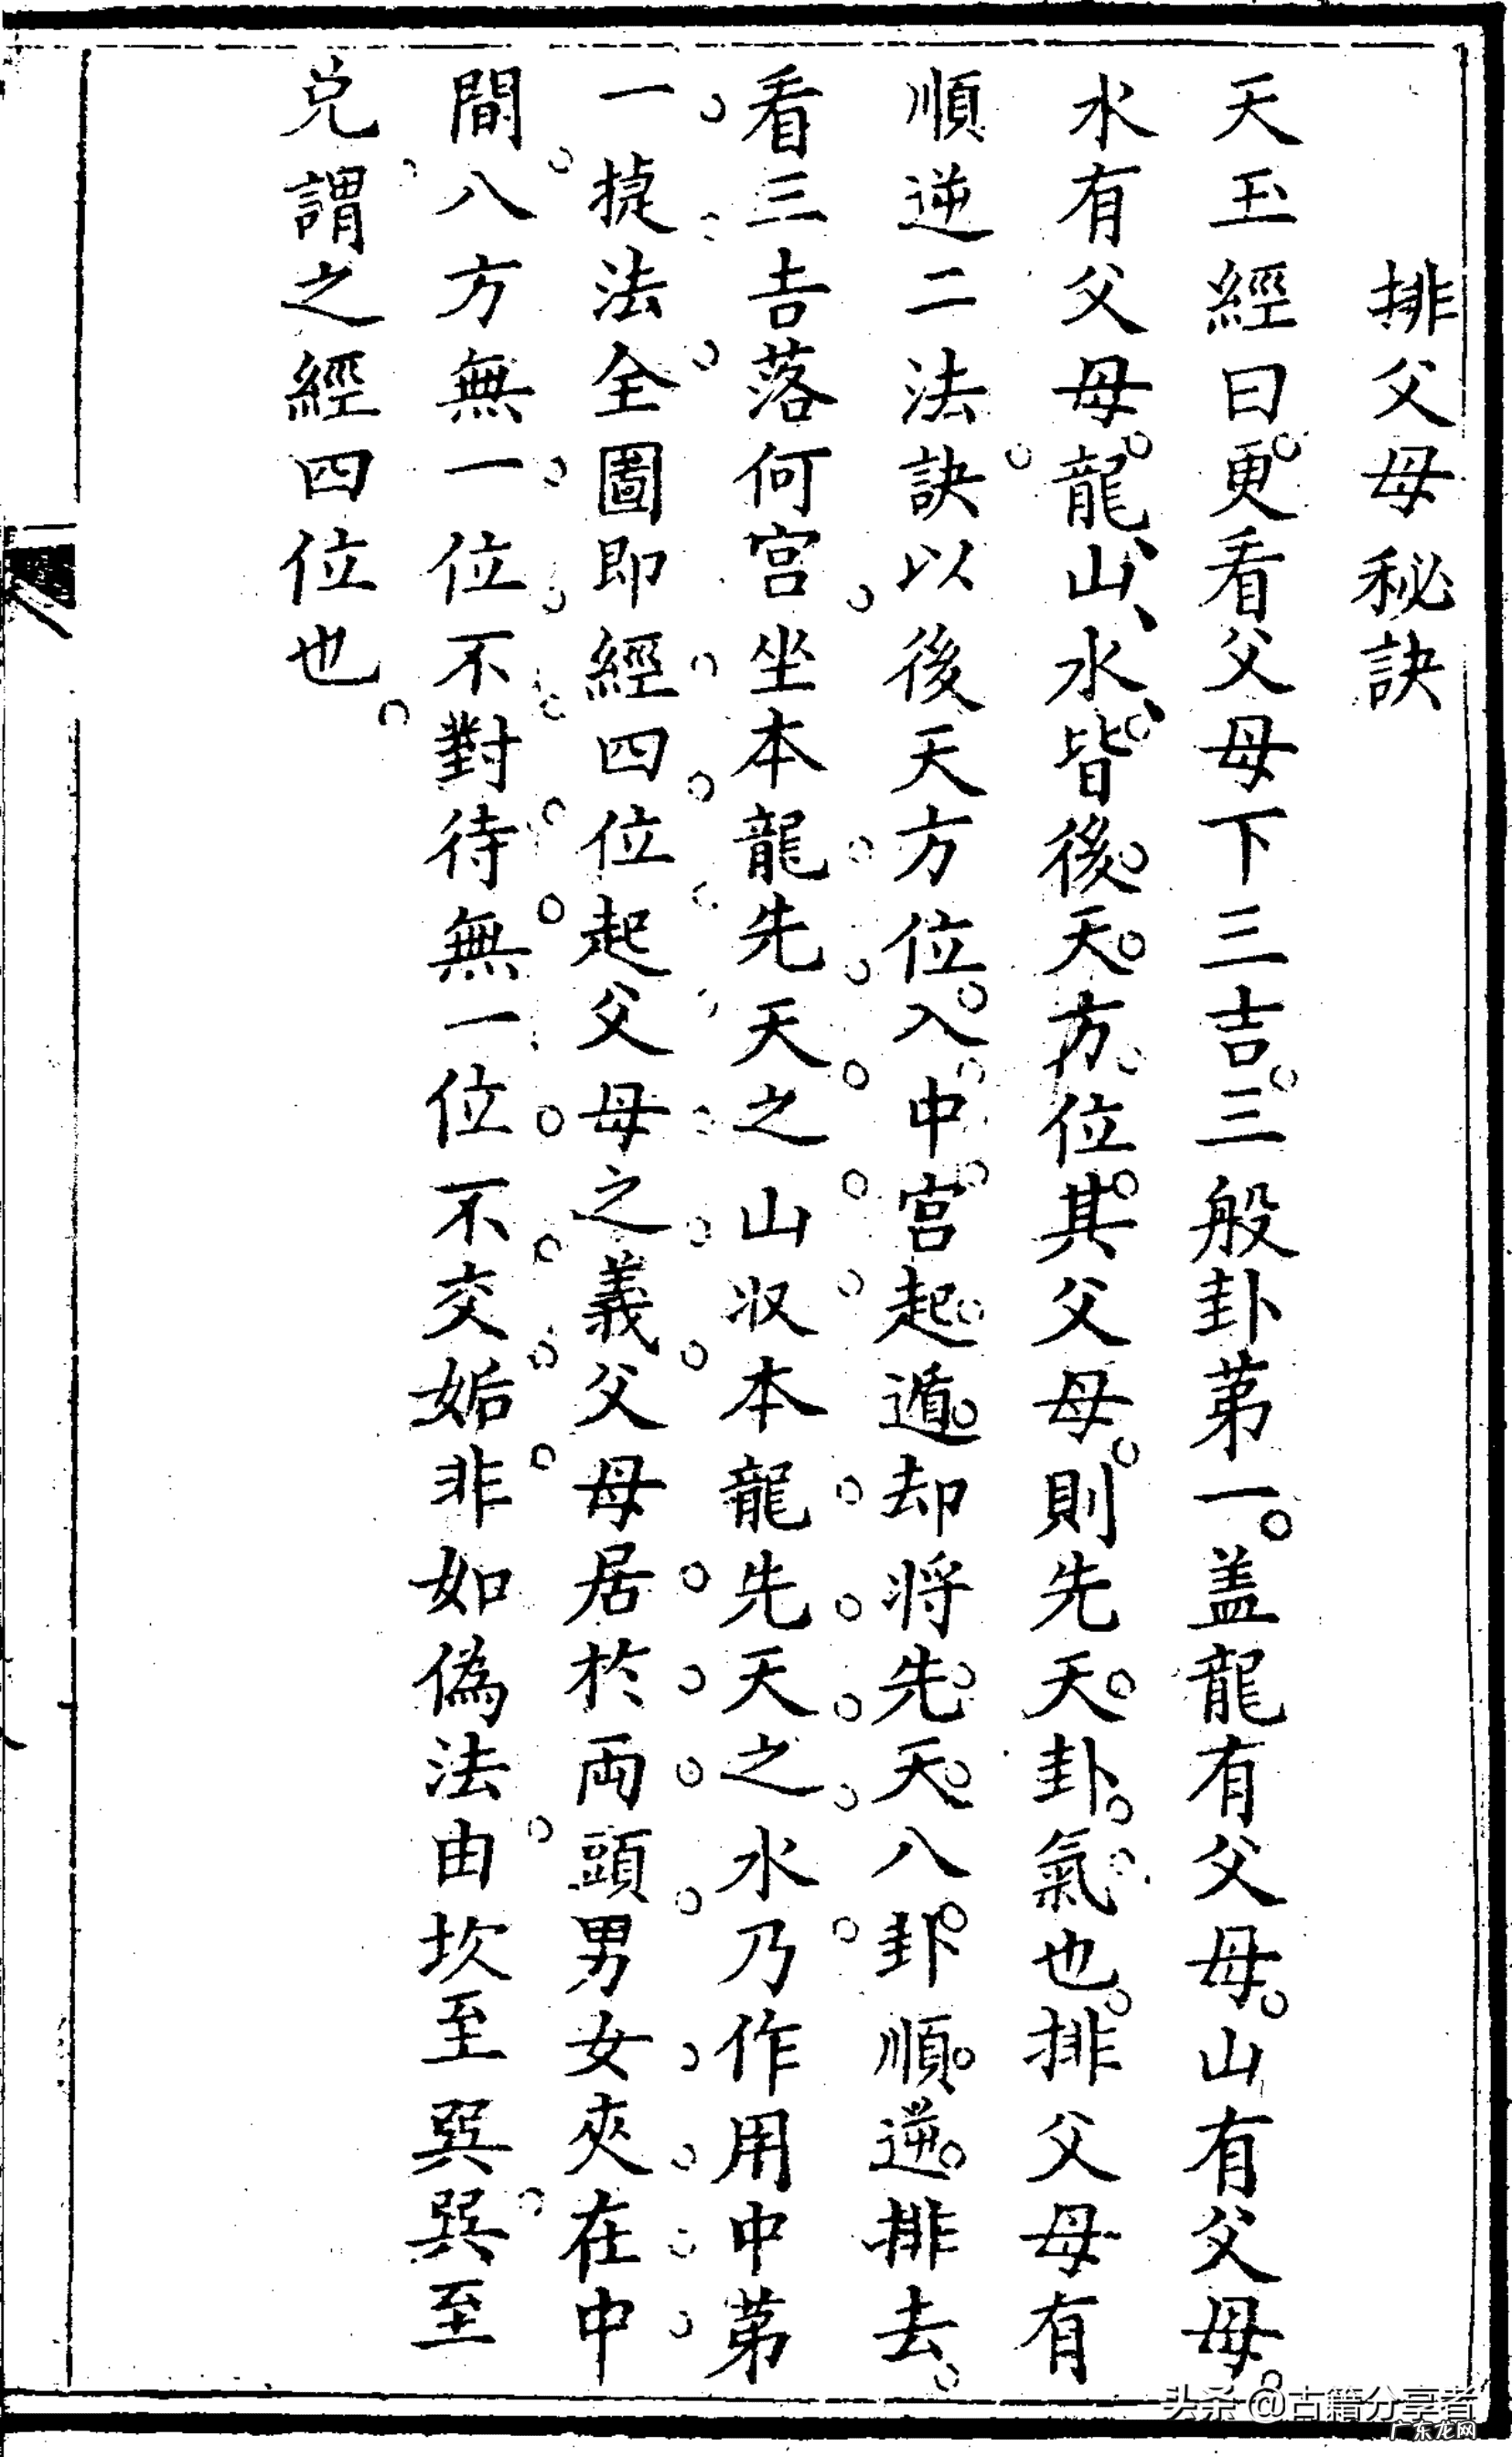 排父母秘訣
天玉經曰更看父母下三吉三般卦苐一盖龍有父母山有父母
水有父母龍山水皆後天方位其父母則先天卦氣也排父母有
順逆二法訣以後天方位入中宮起遁却将先天八卦順逆排去
看三吉落何宮坐本龍先天之山収本龍先天之水乃作用中苐
一捷法全圖即經四位起父母之義父母居於両頭男女夾在中
間八方無一位不對待無一位不交姤非如偽法由坎至巽巽至
兑謂之經四位也
头杀@古籍分享者
广东龙网